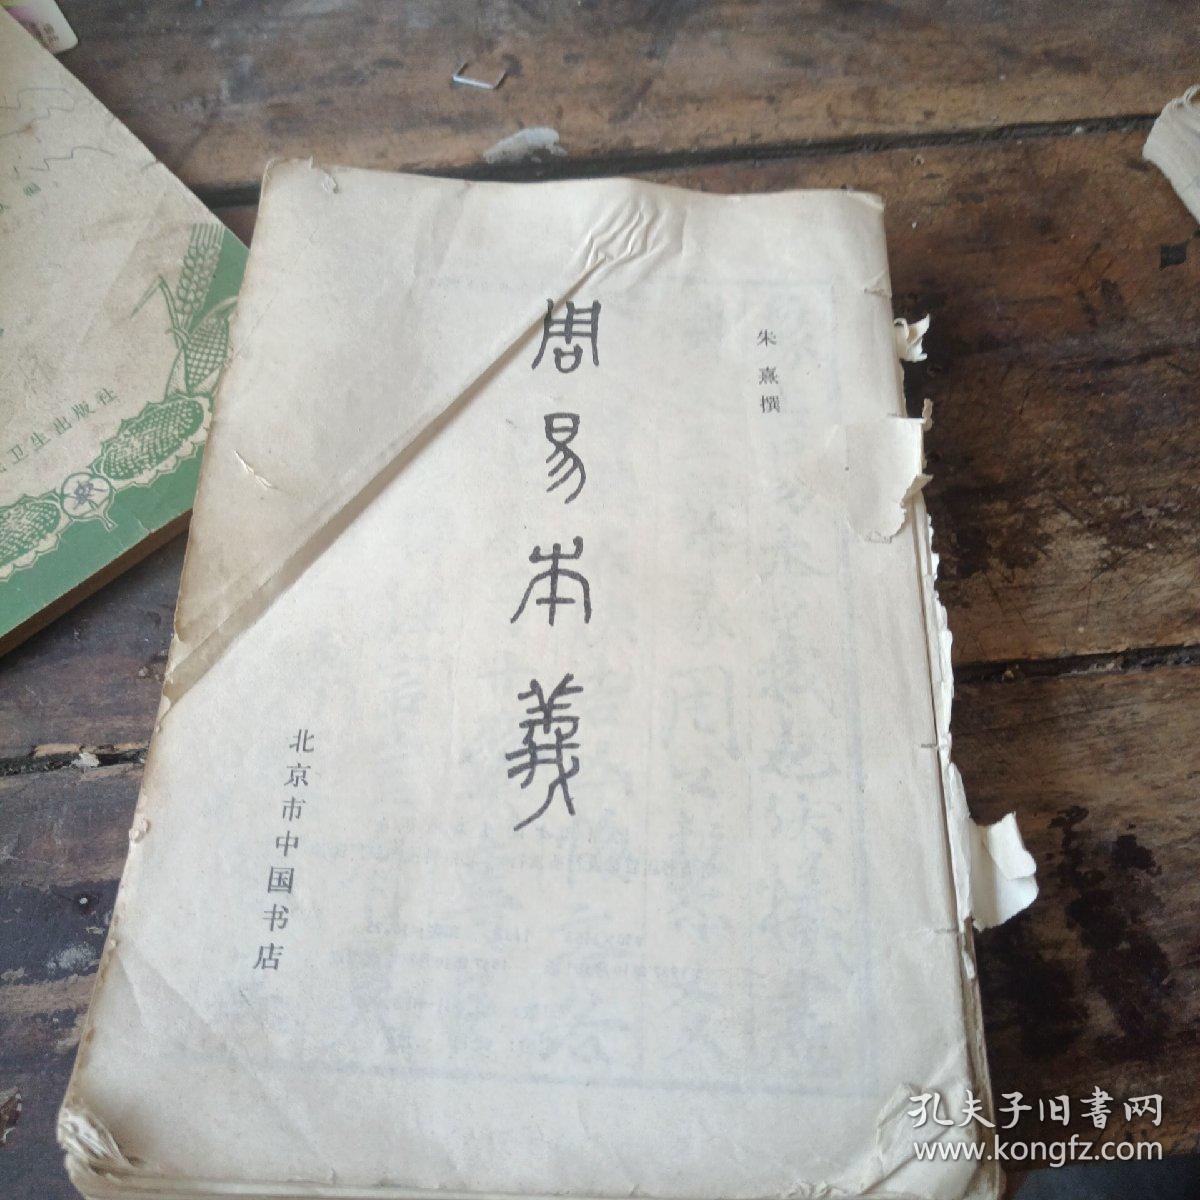 朱熹撰
周易本義
北京市中国书店
卫生出版社
编
孔夫子旧書网
www.kongfz.com